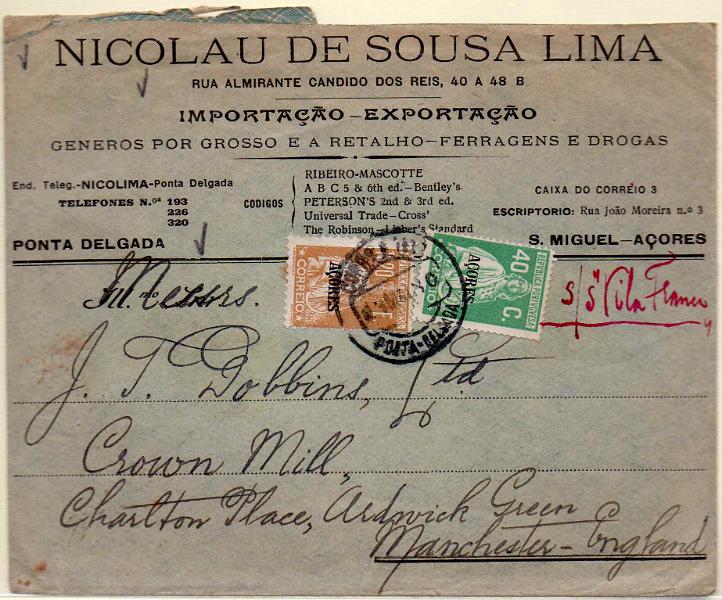 NICOLAU DE SOUSA LIMA
RUA ALMIRANTE CANDIDO DOS REIS, 40 A 48 B
IMPORTAÇÃO-EXPORTAÇÃO
GENEROS POR GROSSO E A RETALHO-FERRAGENS E DROGAS
End. Teleg.-NICOLIMA-Ponta Delgada
TELEFONES N.os 193
226
320
CODIGOS
RIBEIRO-MASCOTTE
A B C 5 & 6th ed.-Bentley's
PETERSON'S 2nd & 3rd ed.
Universal Trade-Cross'
The Robinson-Lieber's Standard
CAIXA DO CORREIO 3
ESCRIPTORIO: Rua João Moreira n.o 3
PONTA DELGADA
S. MIGUEL-AÇORES
CORREIO
AÇORES
AÇORES
40 C.
s/s Vila Franca
Messrs.
J. T. Dobbins, Ltd
Crown Mill,
Charlton Place, Ardwick Green
Manchester-England